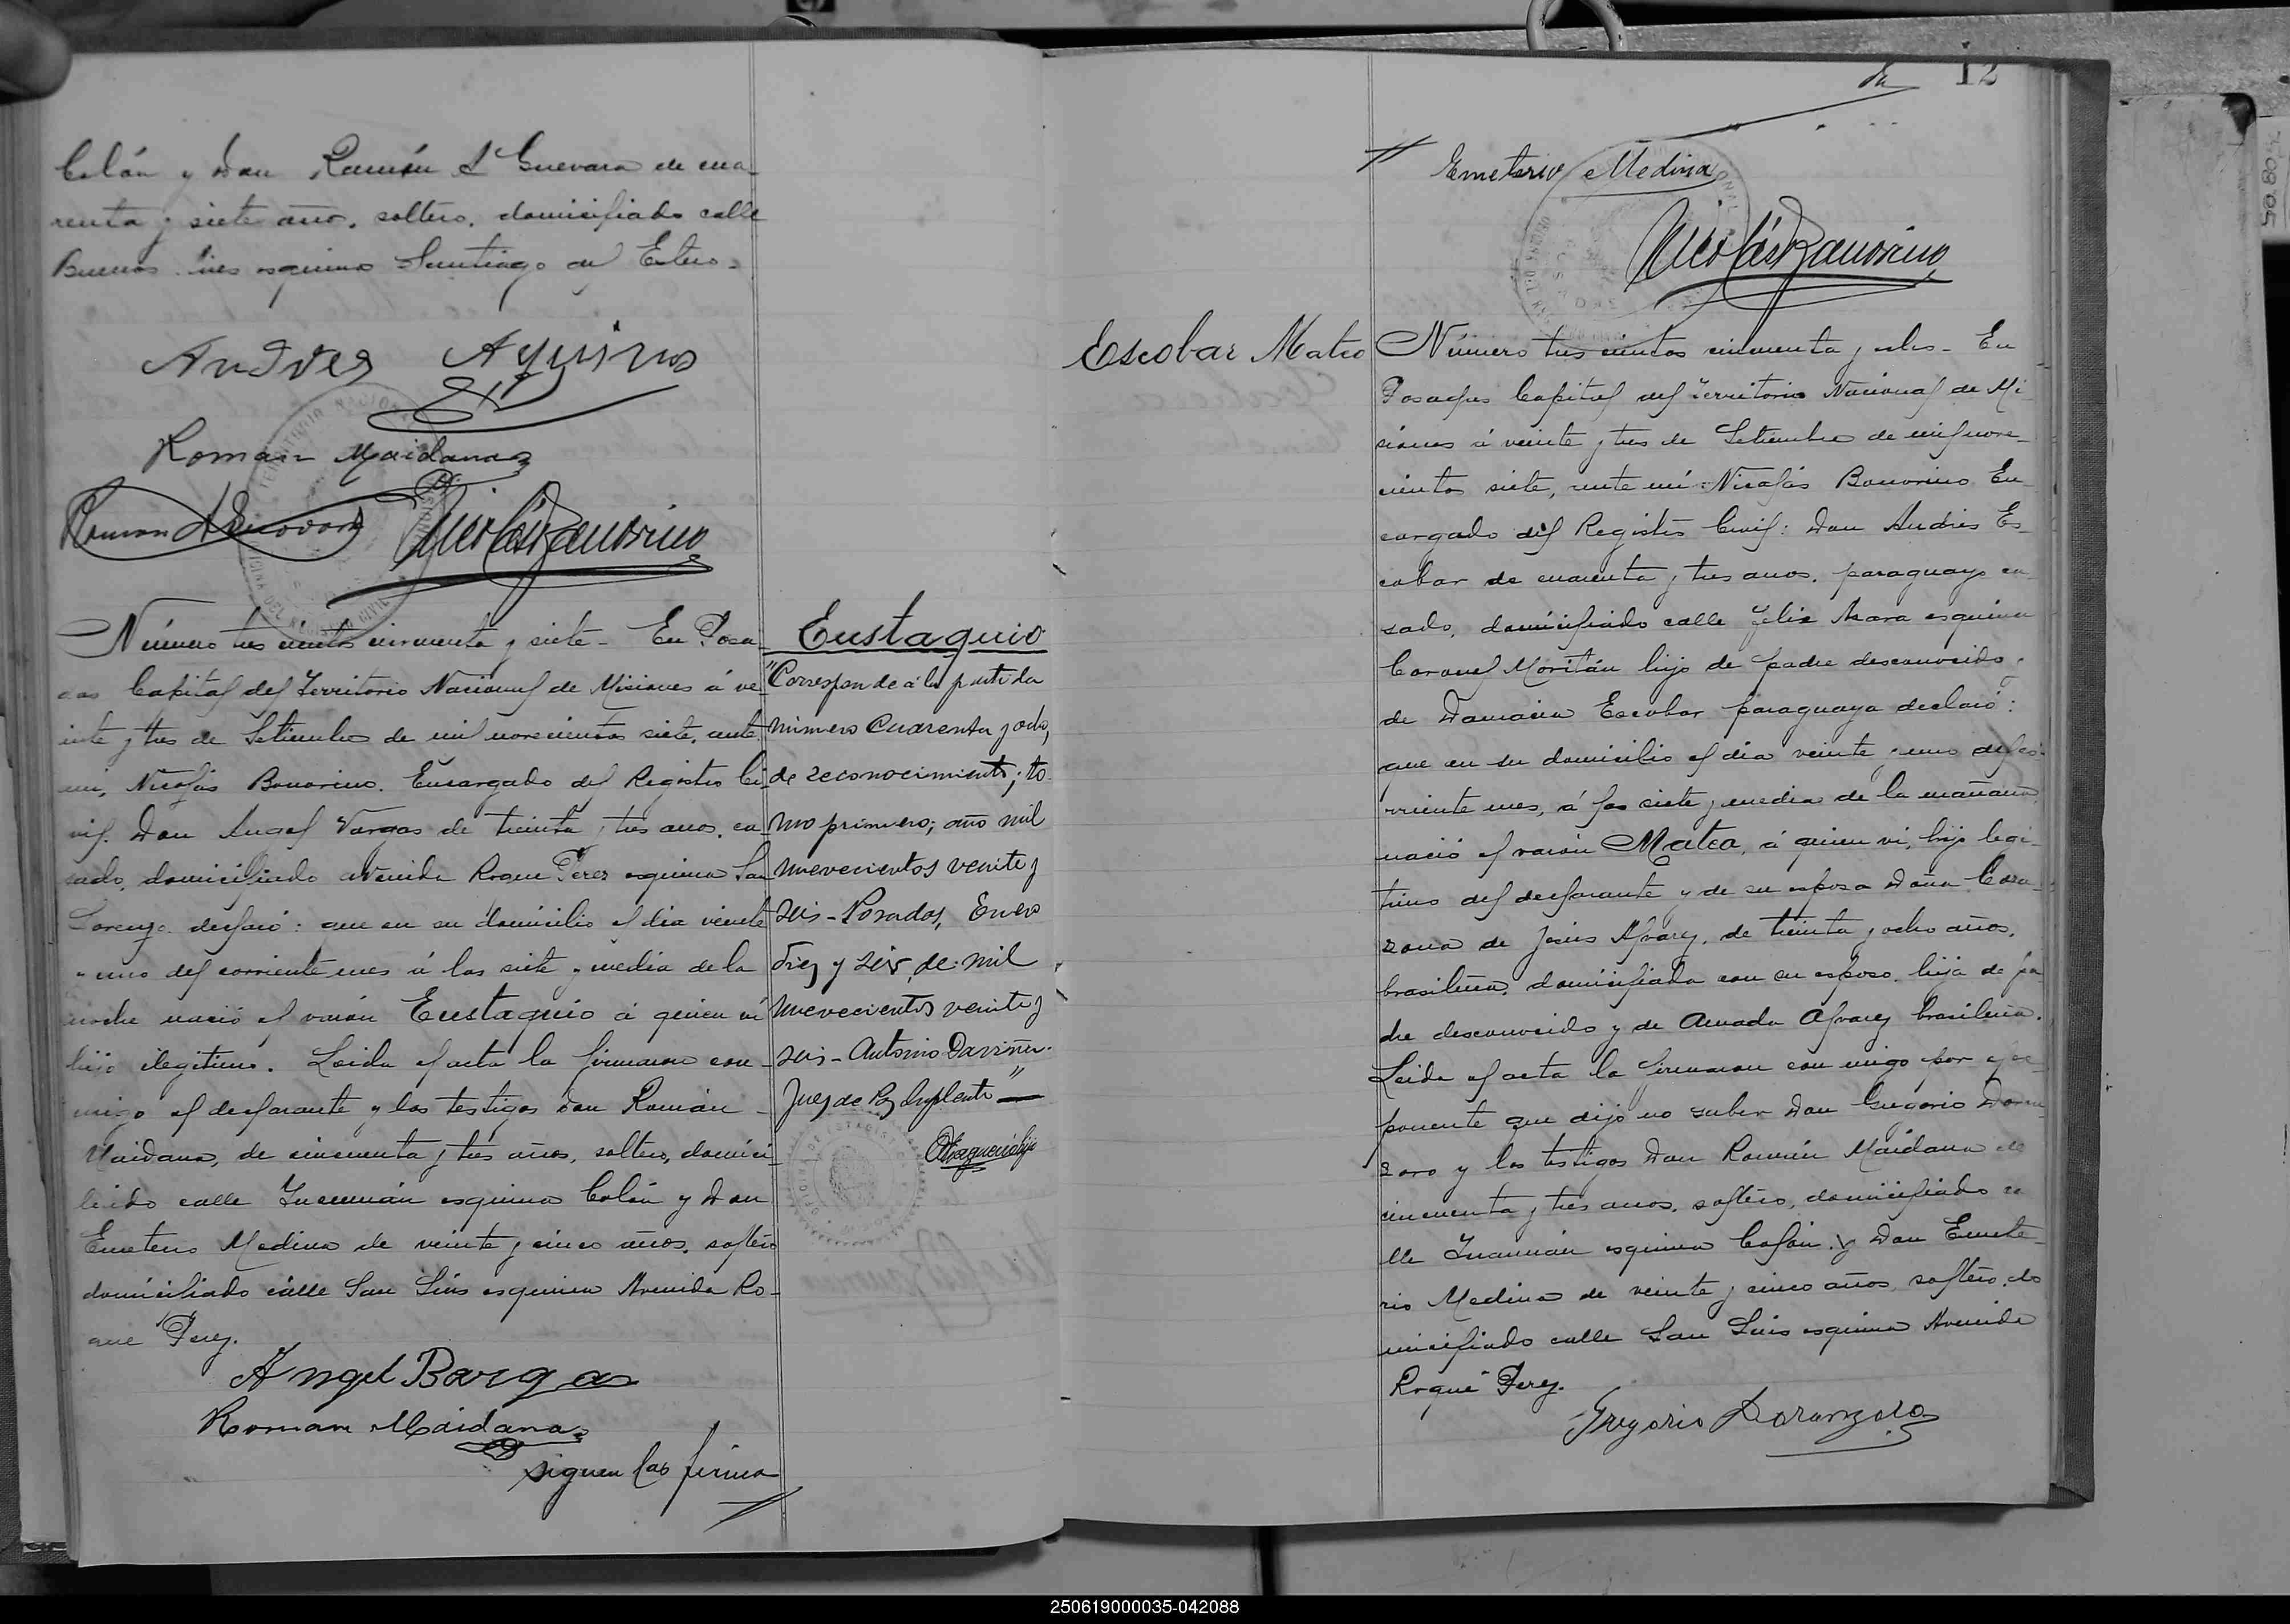 Colán y Don Ramón A Guevara de cua-
renta y siete años, soltero, domiciliado calle
Buenos Aires esquina Santiago del Estero.
Andres Aquino
Roman Maidana
Nicolás Bonorino
Número tres cientos cincuenta y siete - En Posa-
das Capital del Territorio Nacional de Misiones á ve-
inte y tres de Setiembre de mil novecientos siete, ante
mi, Nicolás Bonorino, Encargado del Registro Ci-
vil, Don Angel Vargas de treinta y tres años, ca-
sado, domiciliado avenida Roque Perez esquina San
Lorenzo declaró: que en su domicilio el dia veinte
y uno del corriente mes á las siete y media de la
noche nació el varón Eustaquio á quien ví
hijo ilegitimo. Leida el acta la firmaron con-
migo el declarante y los testigos Don Román
Maidana, de cincuenta y tres años, soltero, domici-
liado calle Tucumán esquina Colón y Don
Emeterio Medina de veinte y cinco años, soltero
domiciliado calle San Luis esquina Avenida Ro-
que Perez.
Angel Barga
Roman Maidana
siguen las firma
Eustaquio
"Corresponde á la partida
número cuarenta y ocho,
de reconocimiento; to-
mo primero; año mil
nuevecientos veinte y
seis - Posadas, Enero
diez y seis de mil
nuevecientos veinte y
seis - Antonio Daviña.
Juez de Paz Suplente"
12
Emeterio Medina
Nicolás Bonorino
Escobar Mateo
Número tres cientos cincuenta y ocho - En
Posadas Capital del Territorio Nacional de Mi-
siones á veinte y tres de Setiembre de mil nove-
cientos siete, ante mi Nicolás Bonorino En-
cargado del Registro Civil: Don Andrés Es-
cobar de cuarenta y tres años, paraguayo ca-
sado, domiciliado calle Felix Azara esquina
Coronel Moritán hijo de padre desconocido y
de Damacia Escobar paraguaya declaró:
que en su domicilio el dia veinte y uno del co-
rriente mes, á las siete y media de la mañana
nació el varón Mateo, á quien ví, hijo legí-
timo del declarante y de su esposa Doña Cora-
zona de Jesús Alvarez, de treinta y ocho años,
brasilera, domiciliada con su esposo, hija de pa-
dre desconocido y de Amada Alvarez brasilera.
Leida el acta la firmaron con migo por el ex-
ponente que dijo no saber Don Gregorio Doran-
zoro y los testigos Don Román Maidana de
cincuenta y tres años, soltero, domiciliado ca-
lle Tucumán esquina Colón y Don Emete-
rio Medina de veinte y cinco años, soltero, do-
miciliado calle San Luis esquina Avenida
Roque Perez.
Gregorio Doranzoro
250619000035-042088